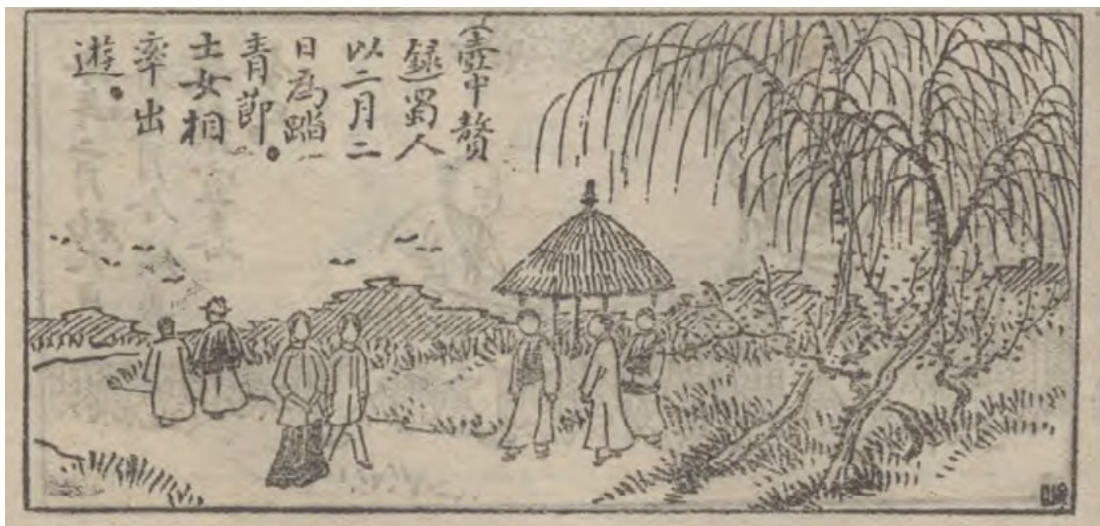 壺中贅
録蜀人
以二月二
日為踏
青節。
士女相
率出
遊。